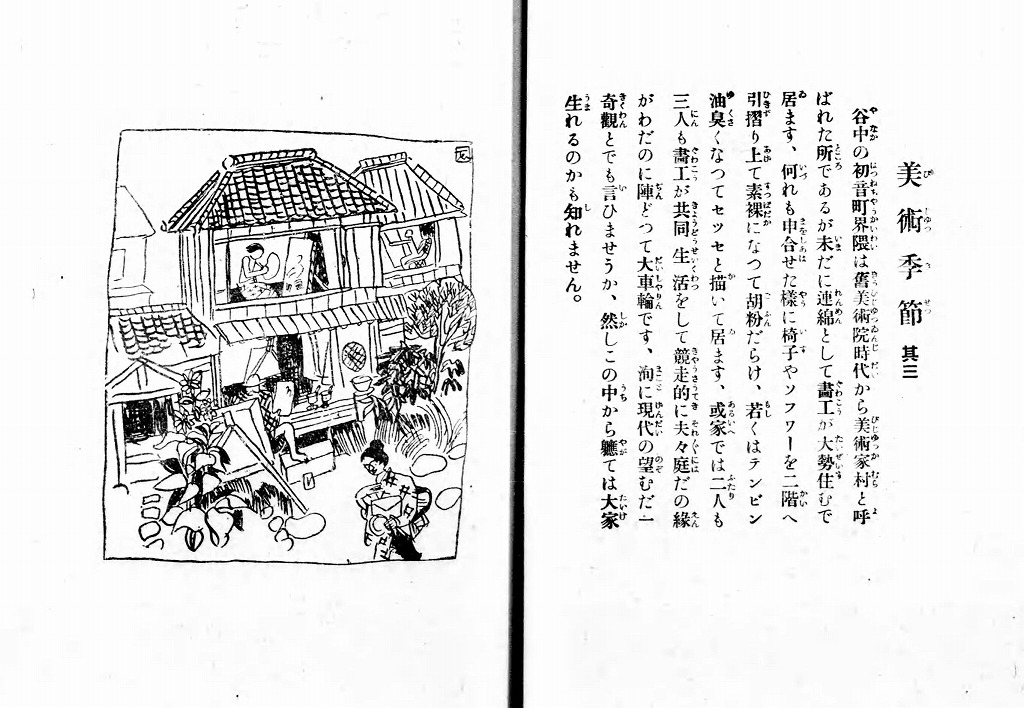 美術季節 其三
谷中の初音町界隈は舊美術院時代から美術家村と呼
ばれた所であるが未だに連綿として畵工が大勢住むで
居ます、何れも申合せた樣に椅子やソフワーを二階へ
引摺り上て素裸になつて胡粉だらけ、若くはテンピン
油臭くなつてセツセと描いて居ます、或家では二人も
三人も畵工が共同生活をして競走的に夫々庭だの緣
がわだのに陣どつて大車輪です、洵に現代の望むだ一
奇觀とでも言ひませうか、然しこの中から軈ては大家
生れるのかも知れません。